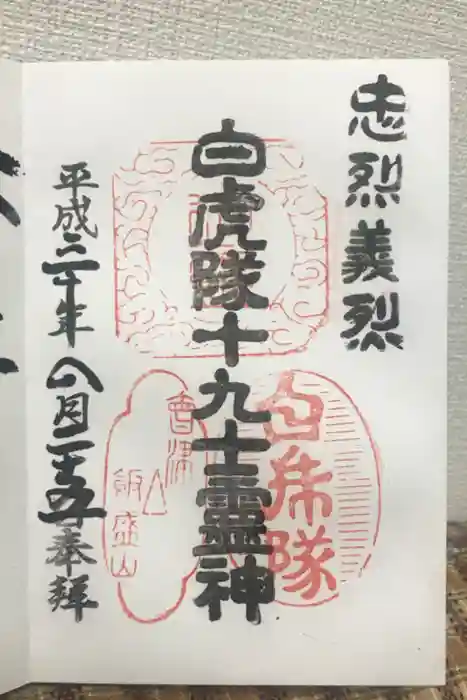 忠烈義烈
白虎隊十九士霊神
白虎隊
會津
飯盛山
平成三十年八月二十五日奉拝